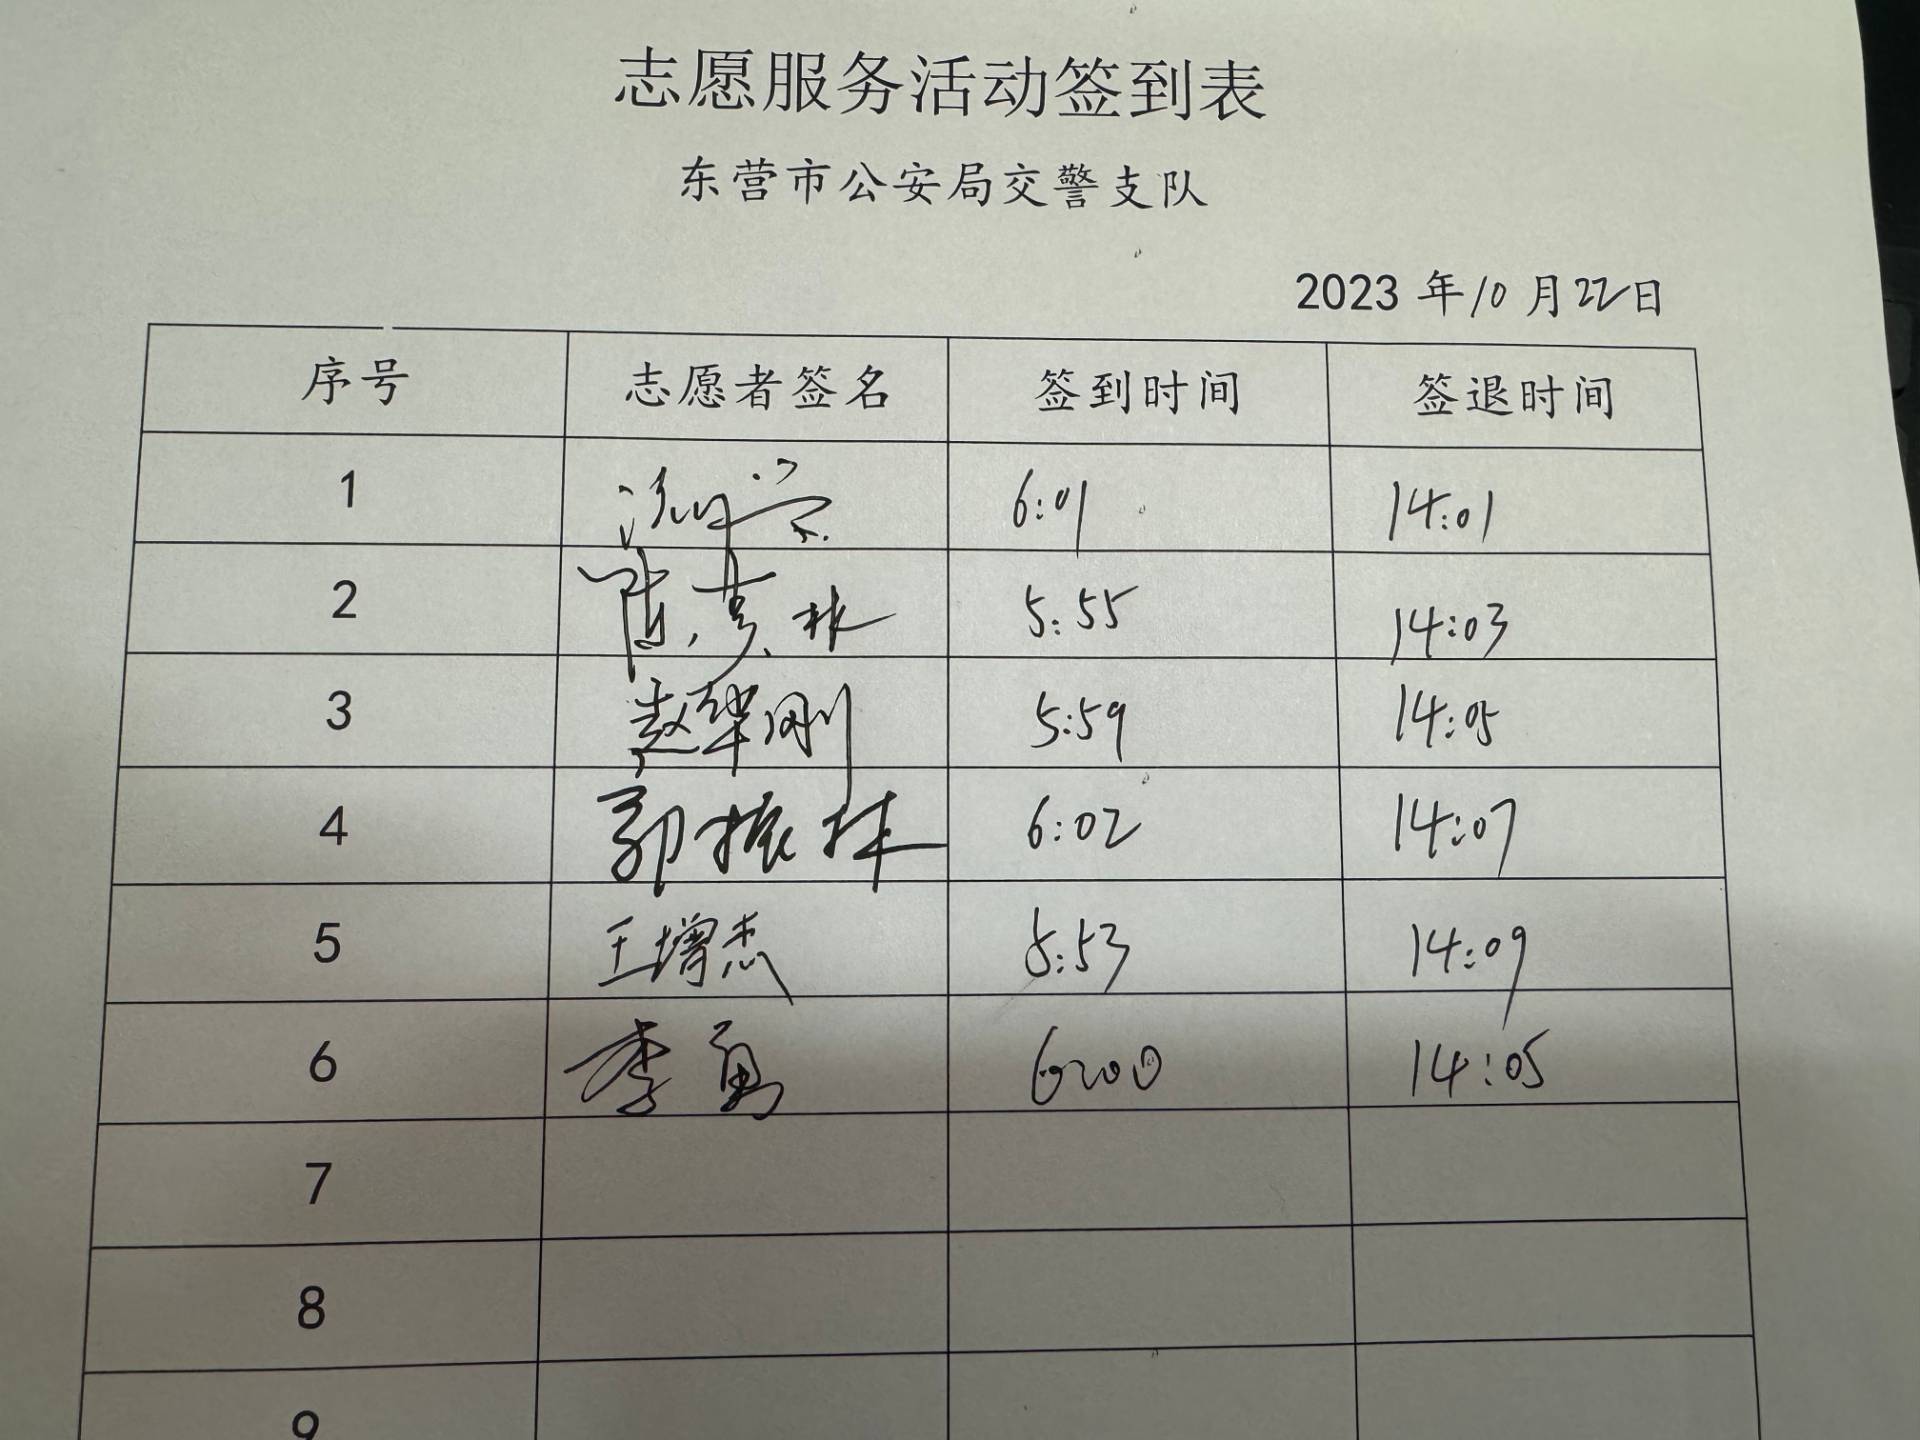 志愿服务活动签到表
东营市公安局交警支队
2023 年 10 月 22 日
序号 志愿者签名 签到时间 签退时间
1 6:01 14:01
2 林 5:55 14:03
3 赵华刚 5:59 14:05
4 郭振林 6:02 14:07
5 王增志 5:53 14:09
6 李勇 6:00 14:05
7
8
9